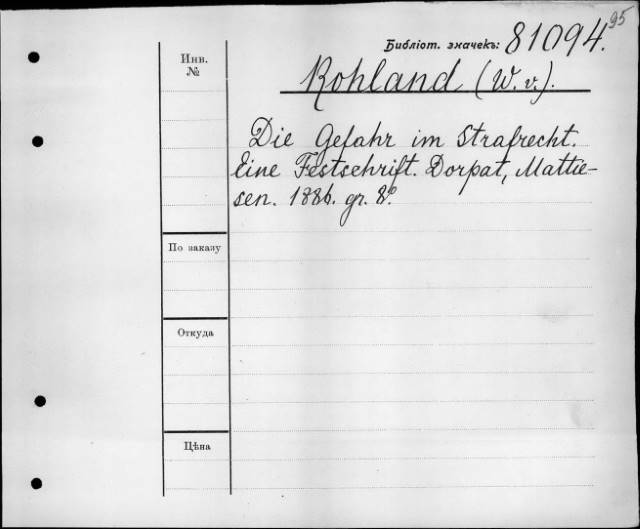 95
Библіот. значекъ: 81094.
Инв.
№
Rohland (W. v.).
Die Gefahr im Strafrecht.
Eine Festschrift. Dorpat, Mattie-
sen. 1886. gr. 8º.
По заказу
Откуда
Цѣна